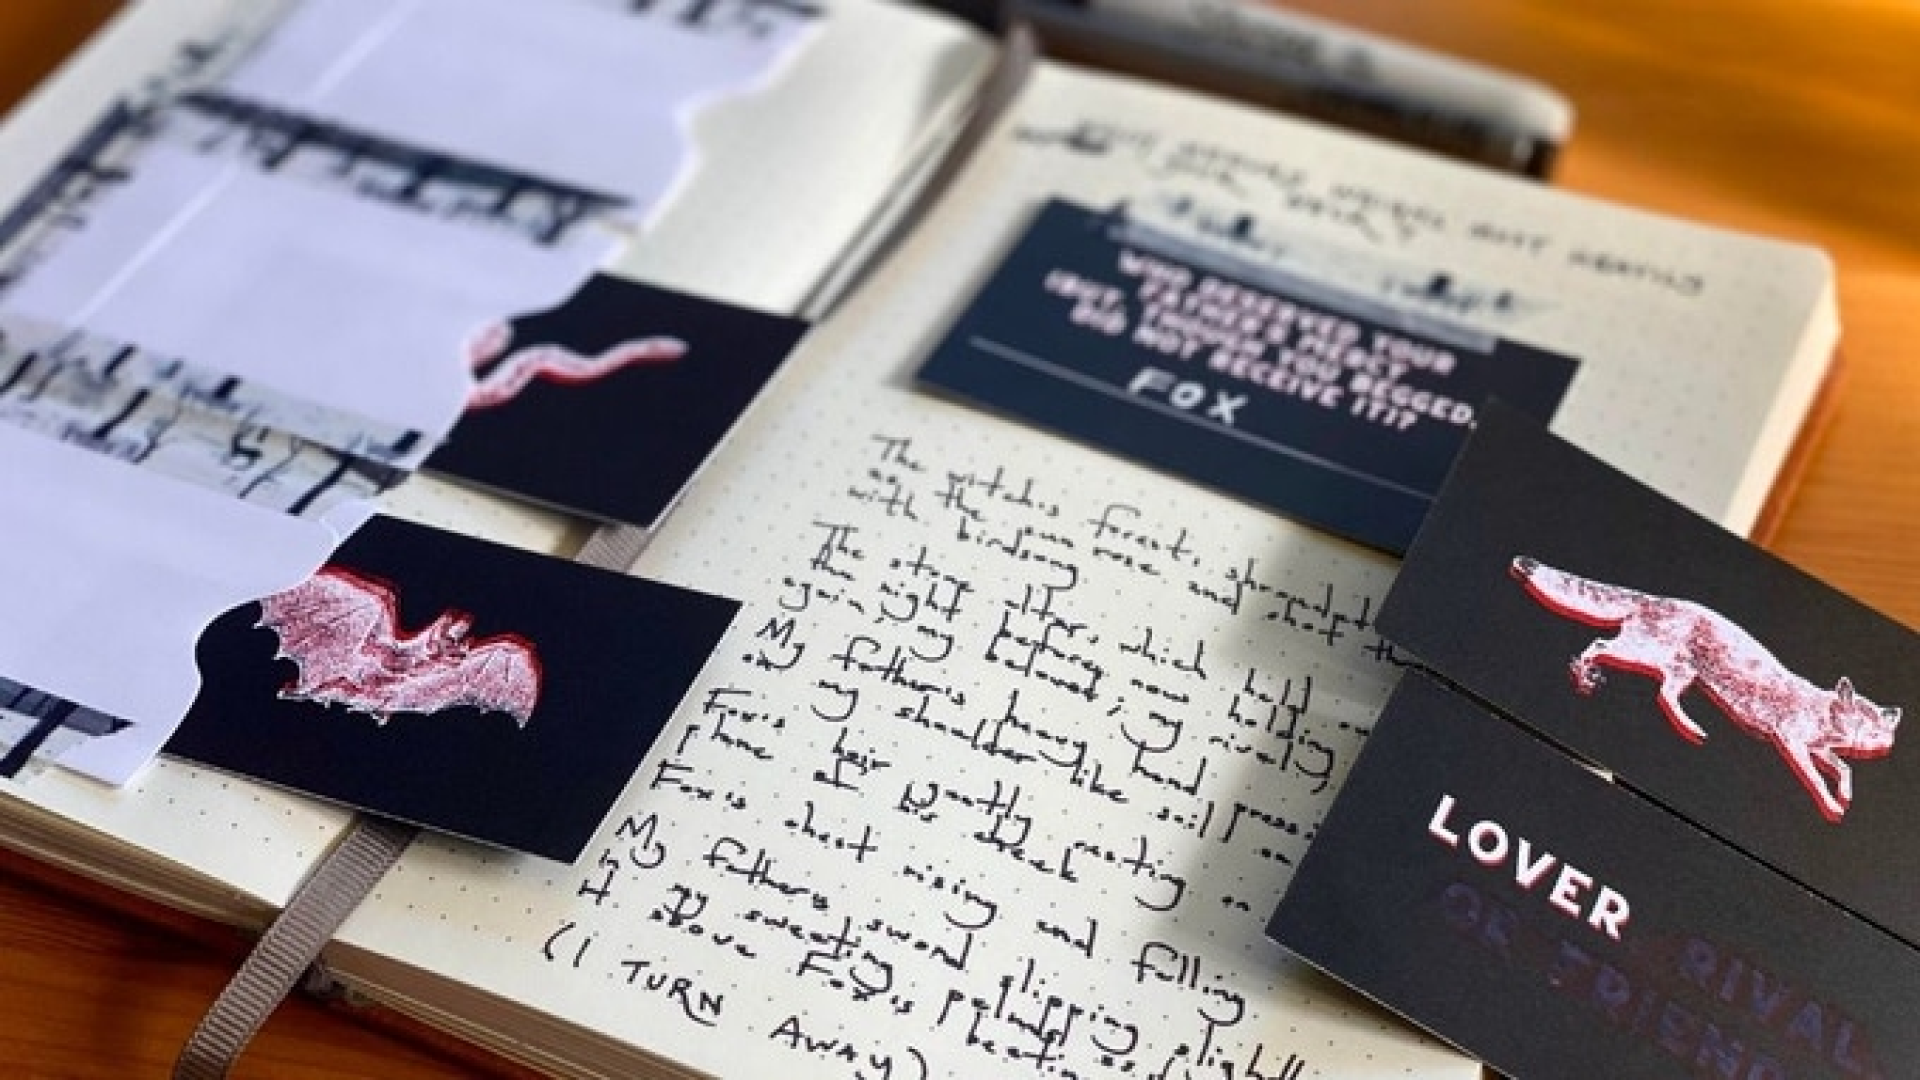 WHO DESERVED YOUR
FATHER'S MERCY
(BUT, THOUGH YOU BEGGED,
DID NOT RECEIVE IT)?
FOX
The witch's forest,
as the sun rose and shot
with birdsong
The stone altar, which held
the night before, now holding
again, my beloved; my rival;
My father's heavy hand
on my shoulder like soil
Fox's hair gently resting on
plane of his cheek
Fox's chest rising and falling
My father's sword slipping slightly
in my sweating
it above Fox's beating
(I TURN AWAY)
LOVER
OR RIVAL
OR FRIEND